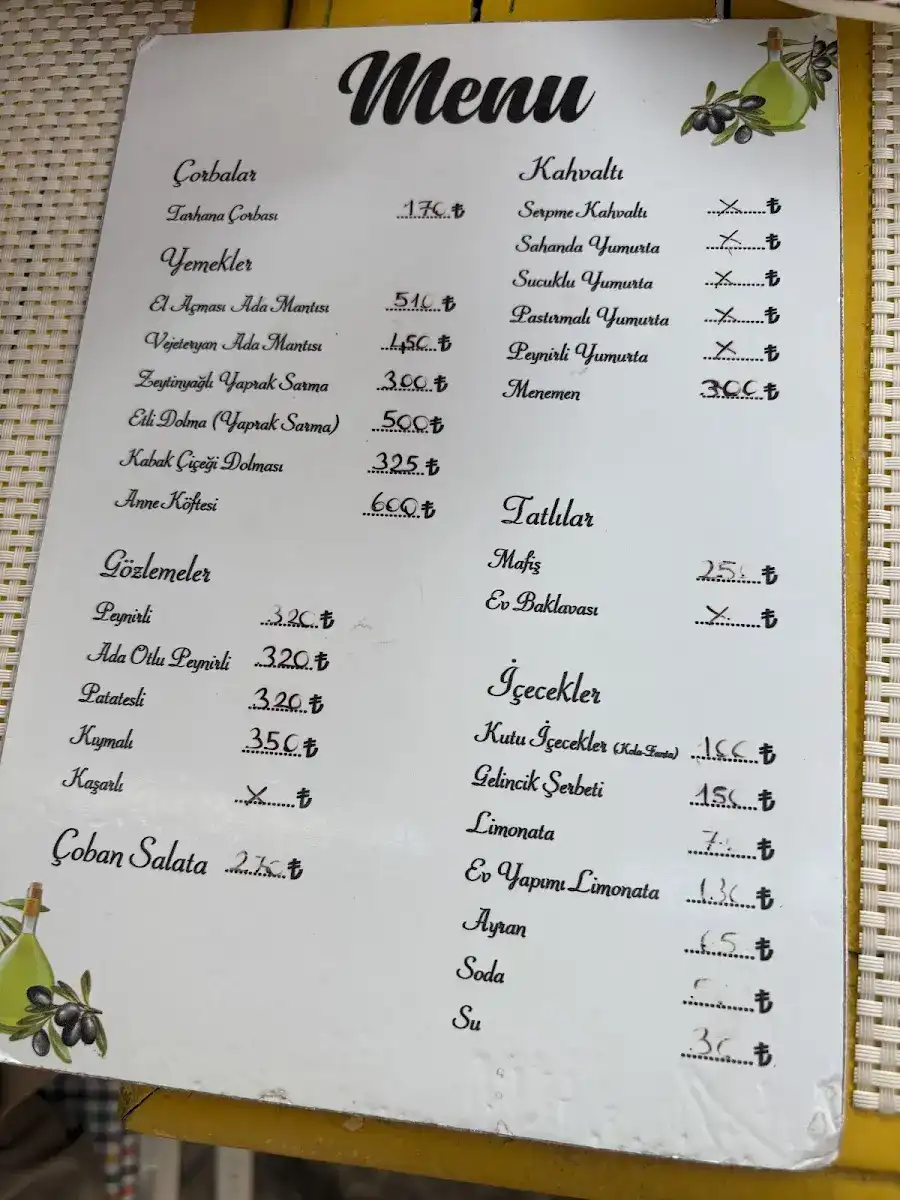 Menu
Çorbalar
Tarhana Çorbası 170 ₺
Yemekler
El Açması Ada Mantısı 510 ₺
Vejeteryan Ada Mantısı 450 ₺
Zeytinyağlı Yaprak Sarma 300 ₺
Etli Dolma (Yaprak Sarma) 500 ₺
Kabak Çiçeği Dolması 325 ₺
Anne Köftesi 600 ₺
Gözlemeler
Peynirli 320 ₺
Ada Otlu Peynirli 320 ₺
Patatesli 320 ₺
Kıymalı 350 ₺
Kaşarlı X ₺
Çoban Salata ₺
Kahvaltı
Serpme Kahvaltı X ₺
Sahanda Yumurta X ₺
Sucuklu Yumurta X ₺
Pastırmalı Yumurta X ₺
Peynirli Yumurta X ₺
Menemen 300 ₺
Tatlılar
Mafiş ₺
Ev Baklavası X ₺
İçecekler
Kutu İçecekler (Kola-Fanta) ₺
Gelincik Şerbeti 150 ₺
Limonata ₺
Ev Yapımı Limonata 130 ₺
Ayran ₺
Soda ₺
Su 30 ₺